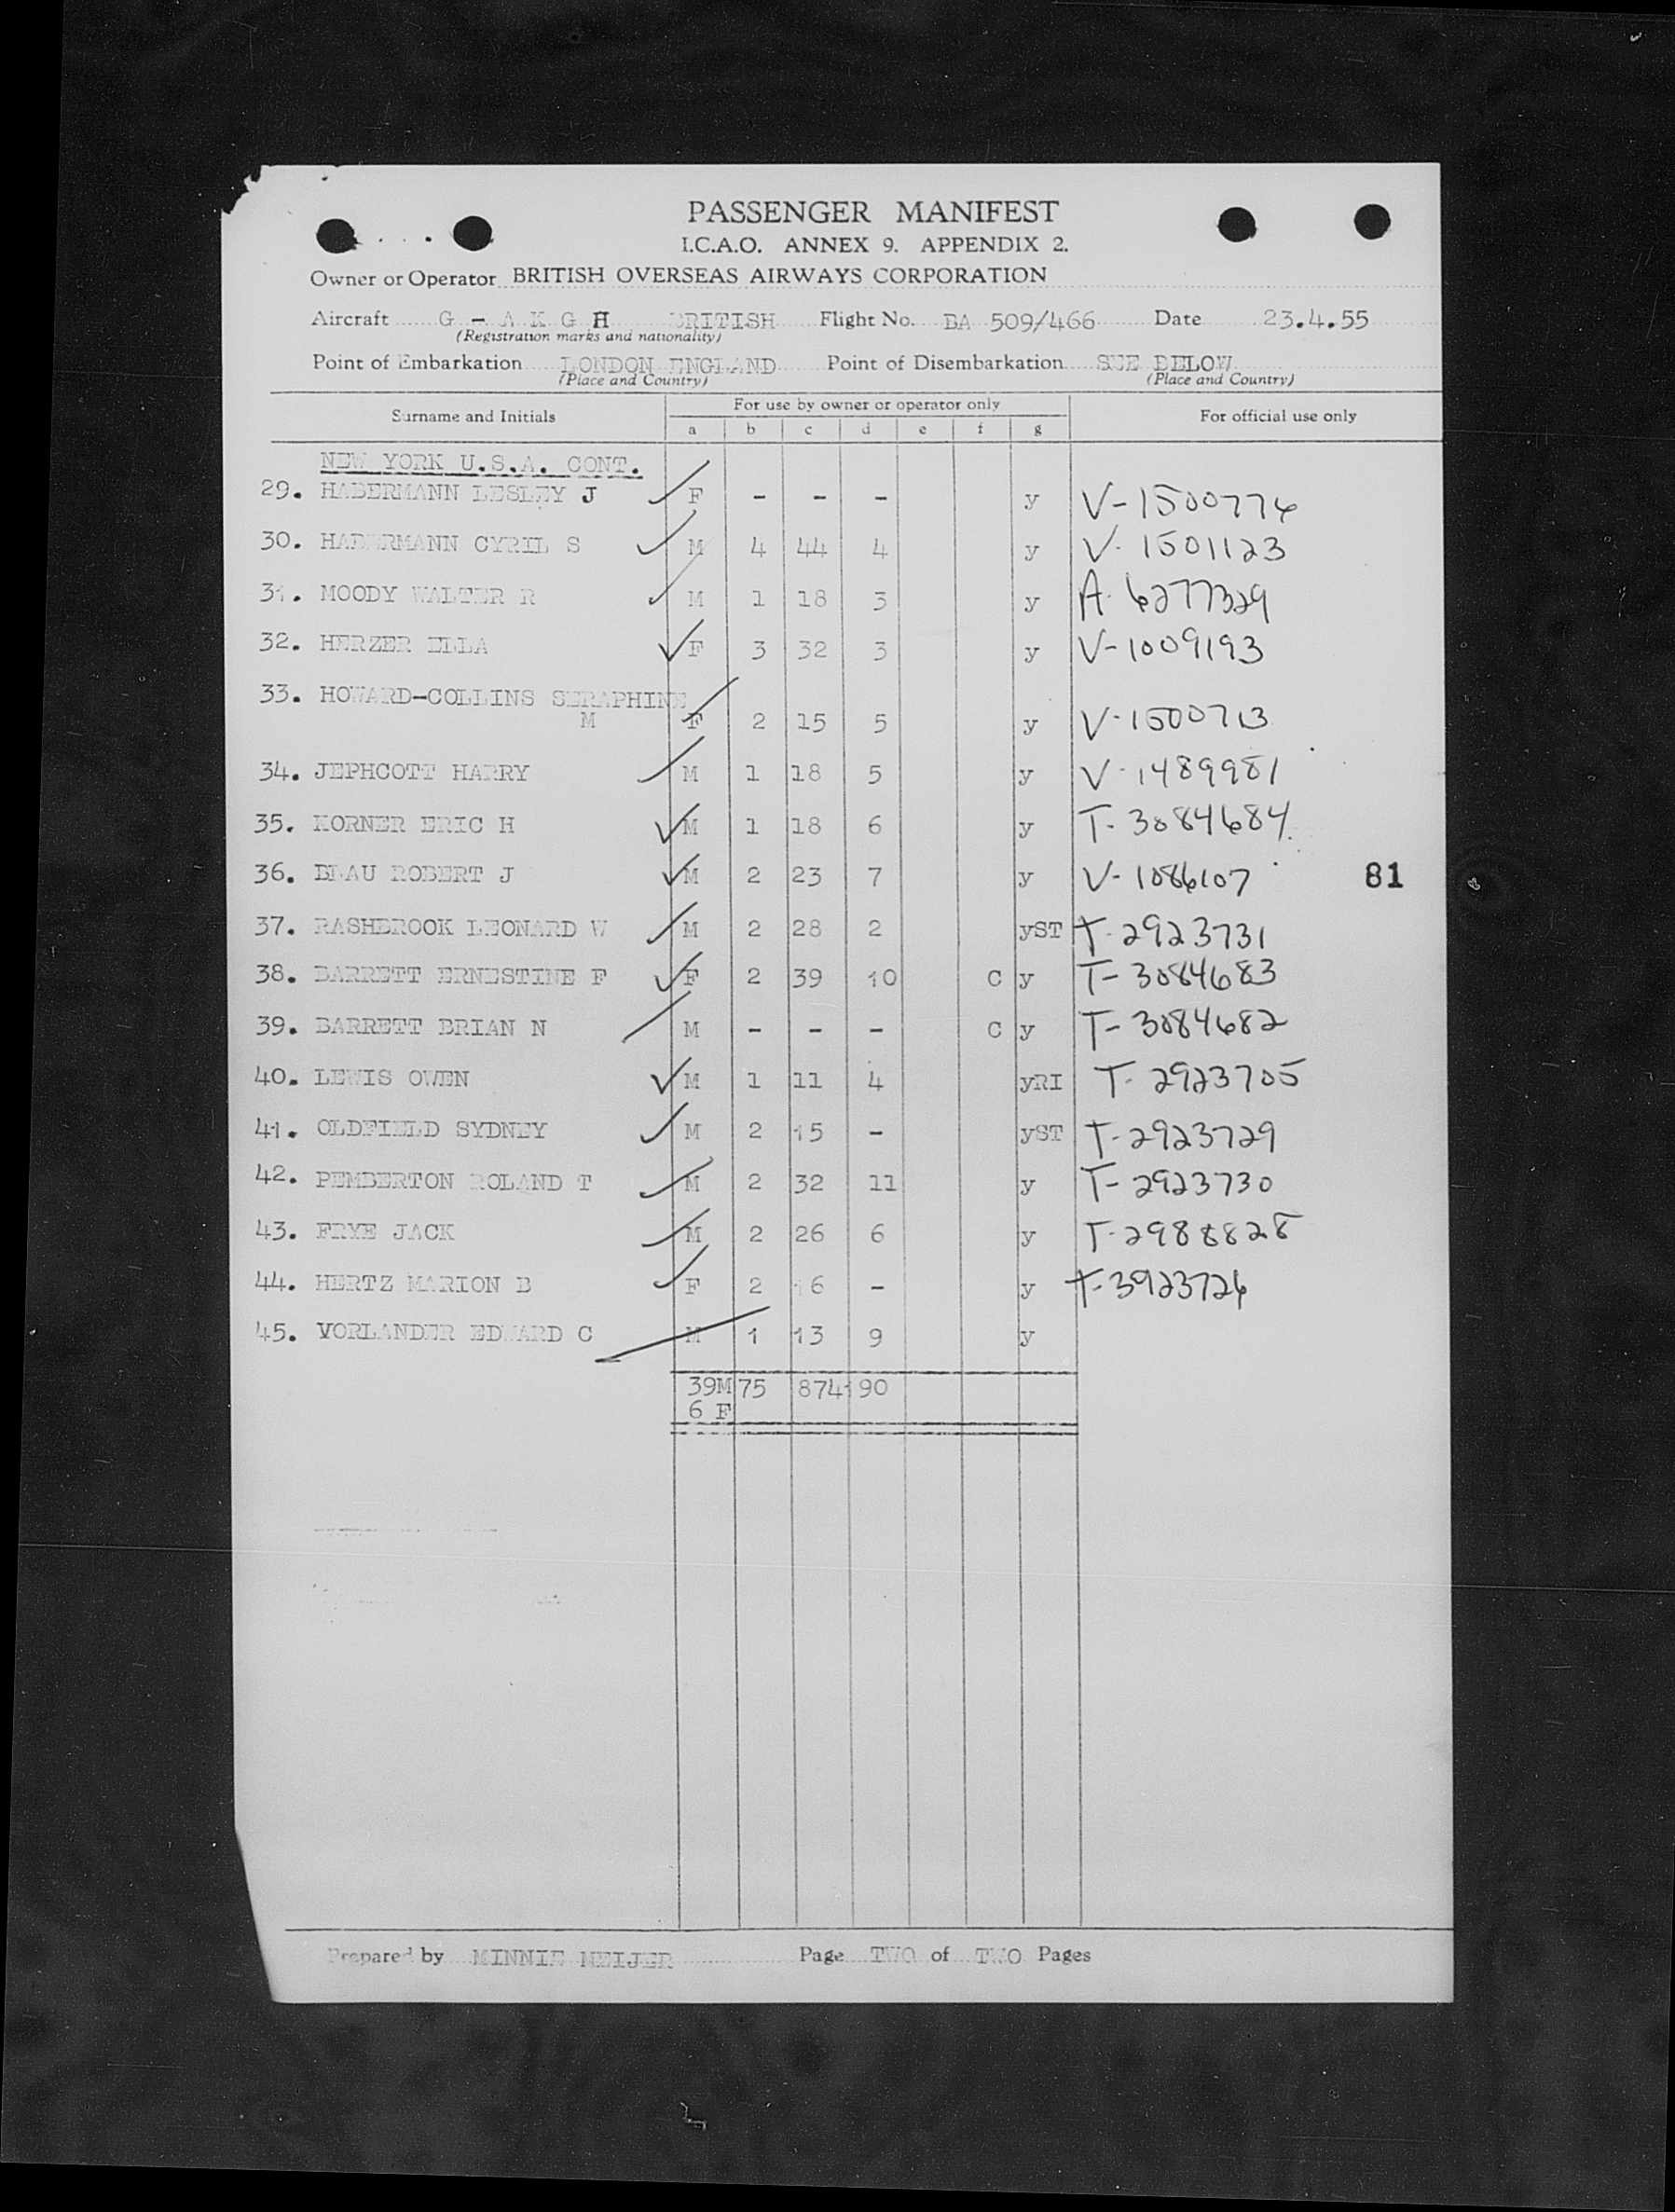 PASSENGER MANIFEST
I.C.A.O. ANNEX 9. APPENDIX 2.
Owner or Operator BRITISH OVERSEAS AIRWAYS CORPORATION
Aircraft G - A K G H BRITISH Flight No. BA 509/466 Date 23.4.55
(Registration marks and nationality)
Point of Embarkation LONDON ENGLAND Point of Disembarkation SEE BELOW
(Place and Country) (Place and Country)
Surname and Initials For use by owner or operator only For official use only
a b c d e f g
NEW YORK U.S.A. CONT.
29. HABERMANN LESLEY J F - - - y V-1500776
30. HABERMANN CYRIL S M 4 44 4 y V-1501123
31. MOODY WALTER R M 1 18 3 y A-6277329
32. HERZER ELLA F 3 32 3 y V-1009193
33. HOWARD-COLLINS SERAPHINE
M F 2 15 5 y V-1500713
34. JEPHCOTT HARRY M 1 18 5 y V-1489981
35. KORNER ERIC H M 1 18 6 y T-3084684
36. BEAU ROBERT J M 2 23 7 y V-1086107 81
37. RASHBROOK LEONARD W M 2 28 2 yST T-2923731
38. BARRETT ERNESTINE F F 2 39 10 C y T-3084683
39. BARRETT BRIAN N M - - - C y T-3084682
40. LEWIS OWEN M 1 11 4 yRI T-2923705
41. OLDFIELD SYDNEY M 2 15 - yST T-2923729
42. PEMBERTON ROLAND T M 2 32 11 y T-2923730
43. FRYE JACK M 2 26 6 y T-2988828
44. HERTZ MARION B F 2 16 - y T-3923726
45. VORLANDER EDWARD C M 1 13 9 y
39M 75 874 190
6 F
Prepared by MINNIE MEIJER Page TWO of TWO Pages